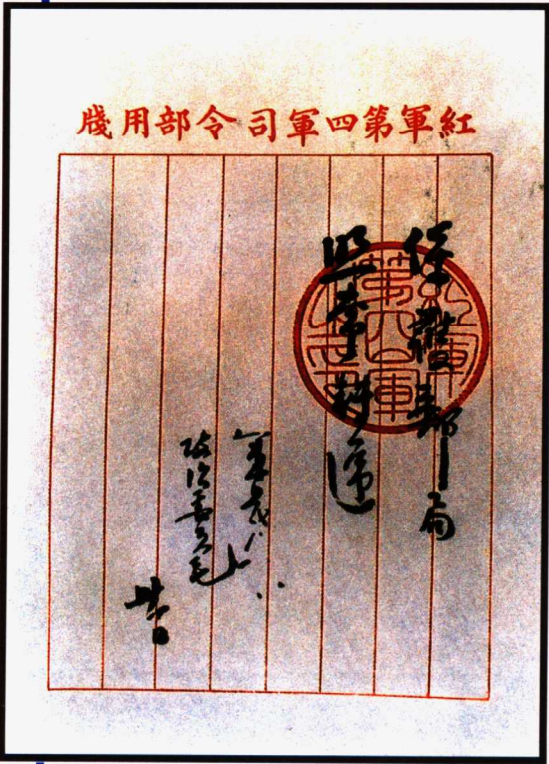 紅軍第四軍司令部用牋
保護郵局
照常轉遞
軍長
政治委員毛
廿日